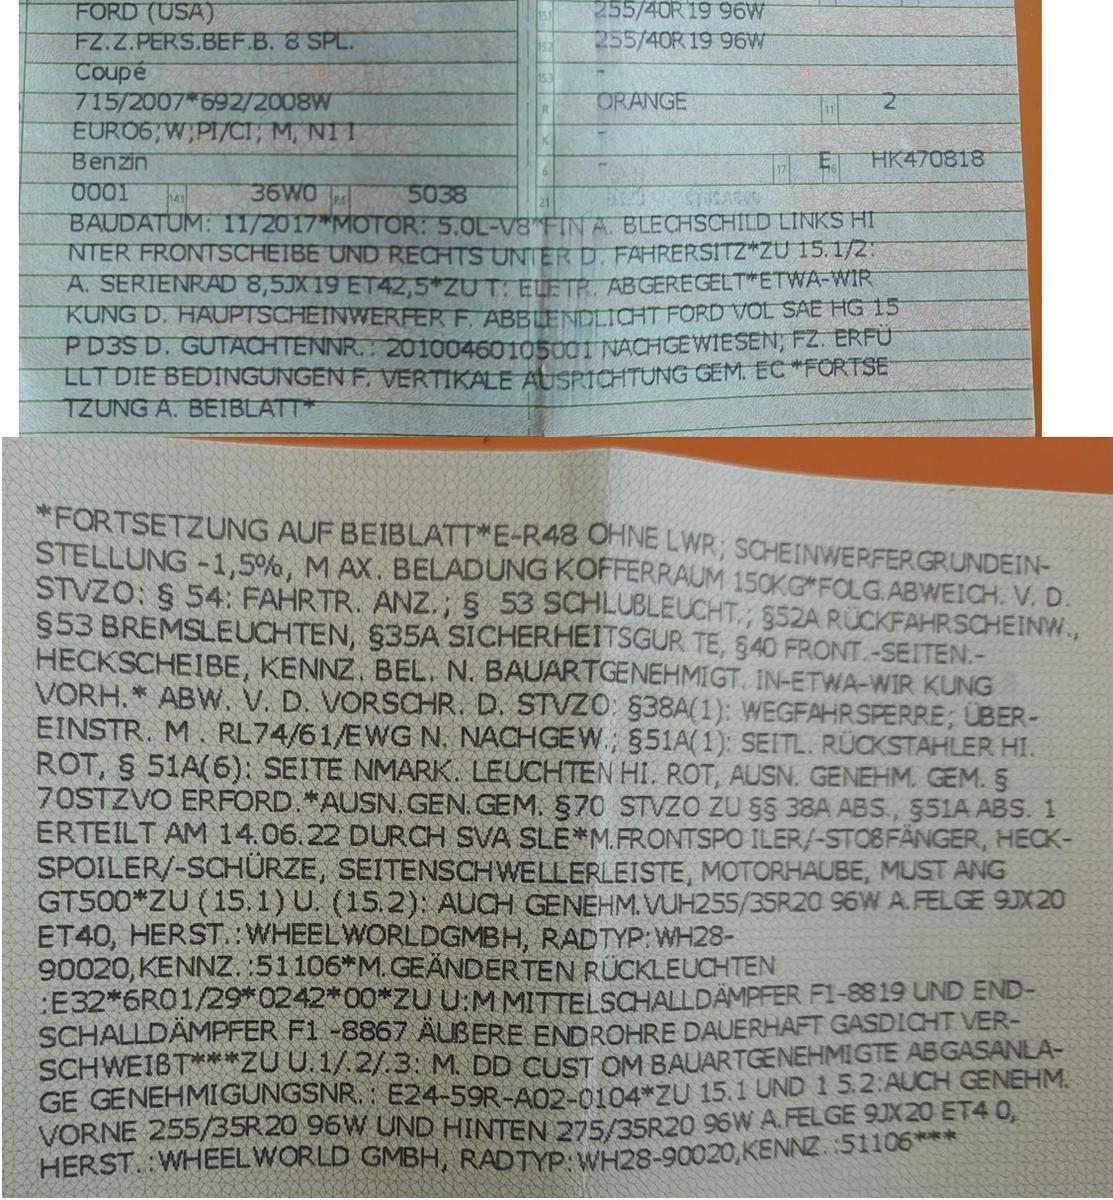 FORD (USA) 15.1 255/40R19 96W
FZ.Z.PERS.BEF.B. 8 SPL. 15.2 255/40R19 96W
Coupé 15.3 -
715/2007*692/2008W R ORANGE 11 2
EURO6;W;PI/CI; M, N1 I K -
Benzin 6 - 17 E 16 HK470818
0001 14.1 36W0 P.1 5038 21
BAUDATUM: 11/2017*MOTOR: 5.0L-V8*FIN A. BLECHSCHILD LINKS HI
NTER FRONTSCHEIBE UND RECHTS UNTER D. FAHRERSITZ*ZU 15.1/2:
A. SERIENRAD 8,5JX19 ET42,5*ZU T: ELETR. ABGEREGELT*ETWA-WIR
KUNG D. HAUPTSCHEINWERFER F. ABBLENDLICHT FORD VOL SAE HG 15
P D3S D. GUTACHTENNR.: 20100460105001 NACHGEWIESEN; FZ. ERFÜ
LLT DIE BEDINGUNGEN F. VERTIKALE AUSRICHTUNG GEM. EC *FORTSE
TZUNG A. BEIBLATT*
*FORTSETZUNG AUF BEIBLATT*E-R48 OHNE LWR; SCHEINWERFERGRUNDEIN-
STELLUNG -1,5%, M AX. BELADUNG KOFFERRAUM 150KG*FOLG.ABWEICH. V. D.
STVZO: § 54: FAHRTR. ANZ.; § 53 SCHLUßLEUCHT.; §52A RÜCKFAHRSCHEINW.,
§53 BREMSLEUCHTEN, §35A SICHERHEITSGUR TE, §40 FRONT.-SEITEN.-
HECKSCHEIBE, KENNZ. BEL. N. BAUARTGENEHMIGT. IN-ETWA-WIR KUNG
VORH.* ABW. V. D. VORSCHR. D. STVZO: §38A(1): WEGFAHRSPERRE; ÜBER-
EINSTR. M . RL74/61/EWG N. NACHGEW.; §51A(1): SEITL. RÜCKSTAHLER HI.
ROT, § 51A(6): SEITE NMARK. LEUCHTEN HI. ROT, AUSN. GENEHM. GEM. §
70STZVO ERFORD.*AUSN.GEN.GEM. §70 STVZO ZU §§ 38A ABS., §51A ABS. 1
ERTEILT AM 14.06.22 DURCH SVA SLE*M.FRONTSPO ILER/-STOßFÄNGER, HECK-
SPOILER/-SCHÜRZE, SEITENSCHWELLERLEISTE, MOTORHAUBE, MUST ANG
GT500*ZU (15.1) U. (15.2): AUCH GENEHM.VUH255/35R20 96W A.FELGE 9JX20
ET40, HERST.:WHEELWORLDGMBH, RADTYP:WH28-
90020,KENNZ.:51106*M.GEÄNDERTEN RÜCKLEUCHTEN
:E32*6R01/29*0242*00*ZU U:M MITTELSCHALLDÄMPFER F1-8819 UND END-
SCHALLDÄMPFER F1 -8867 ÄUßERE ENDROHRE DAUERHAFT GASDICHT VER-
SCHWEIßT***ZU U.1/.2/.3: M. DD CUST OM BAUARTGENEHMIGTE ABGASANLA-
GE GENEHMIGUNGSNR. : E24-59R-A02-0104*ZU 15.1 UND 1 5.2:AUCH GENEHM.
VORNE 255/35R20 96W UND HINTEN 275/35R20 96W A.FELGE 9JX20 ET4 0,
HERST.:WHEELWORLD GMBH, RADTYP:WH28-90020,KENNZ.:51106***